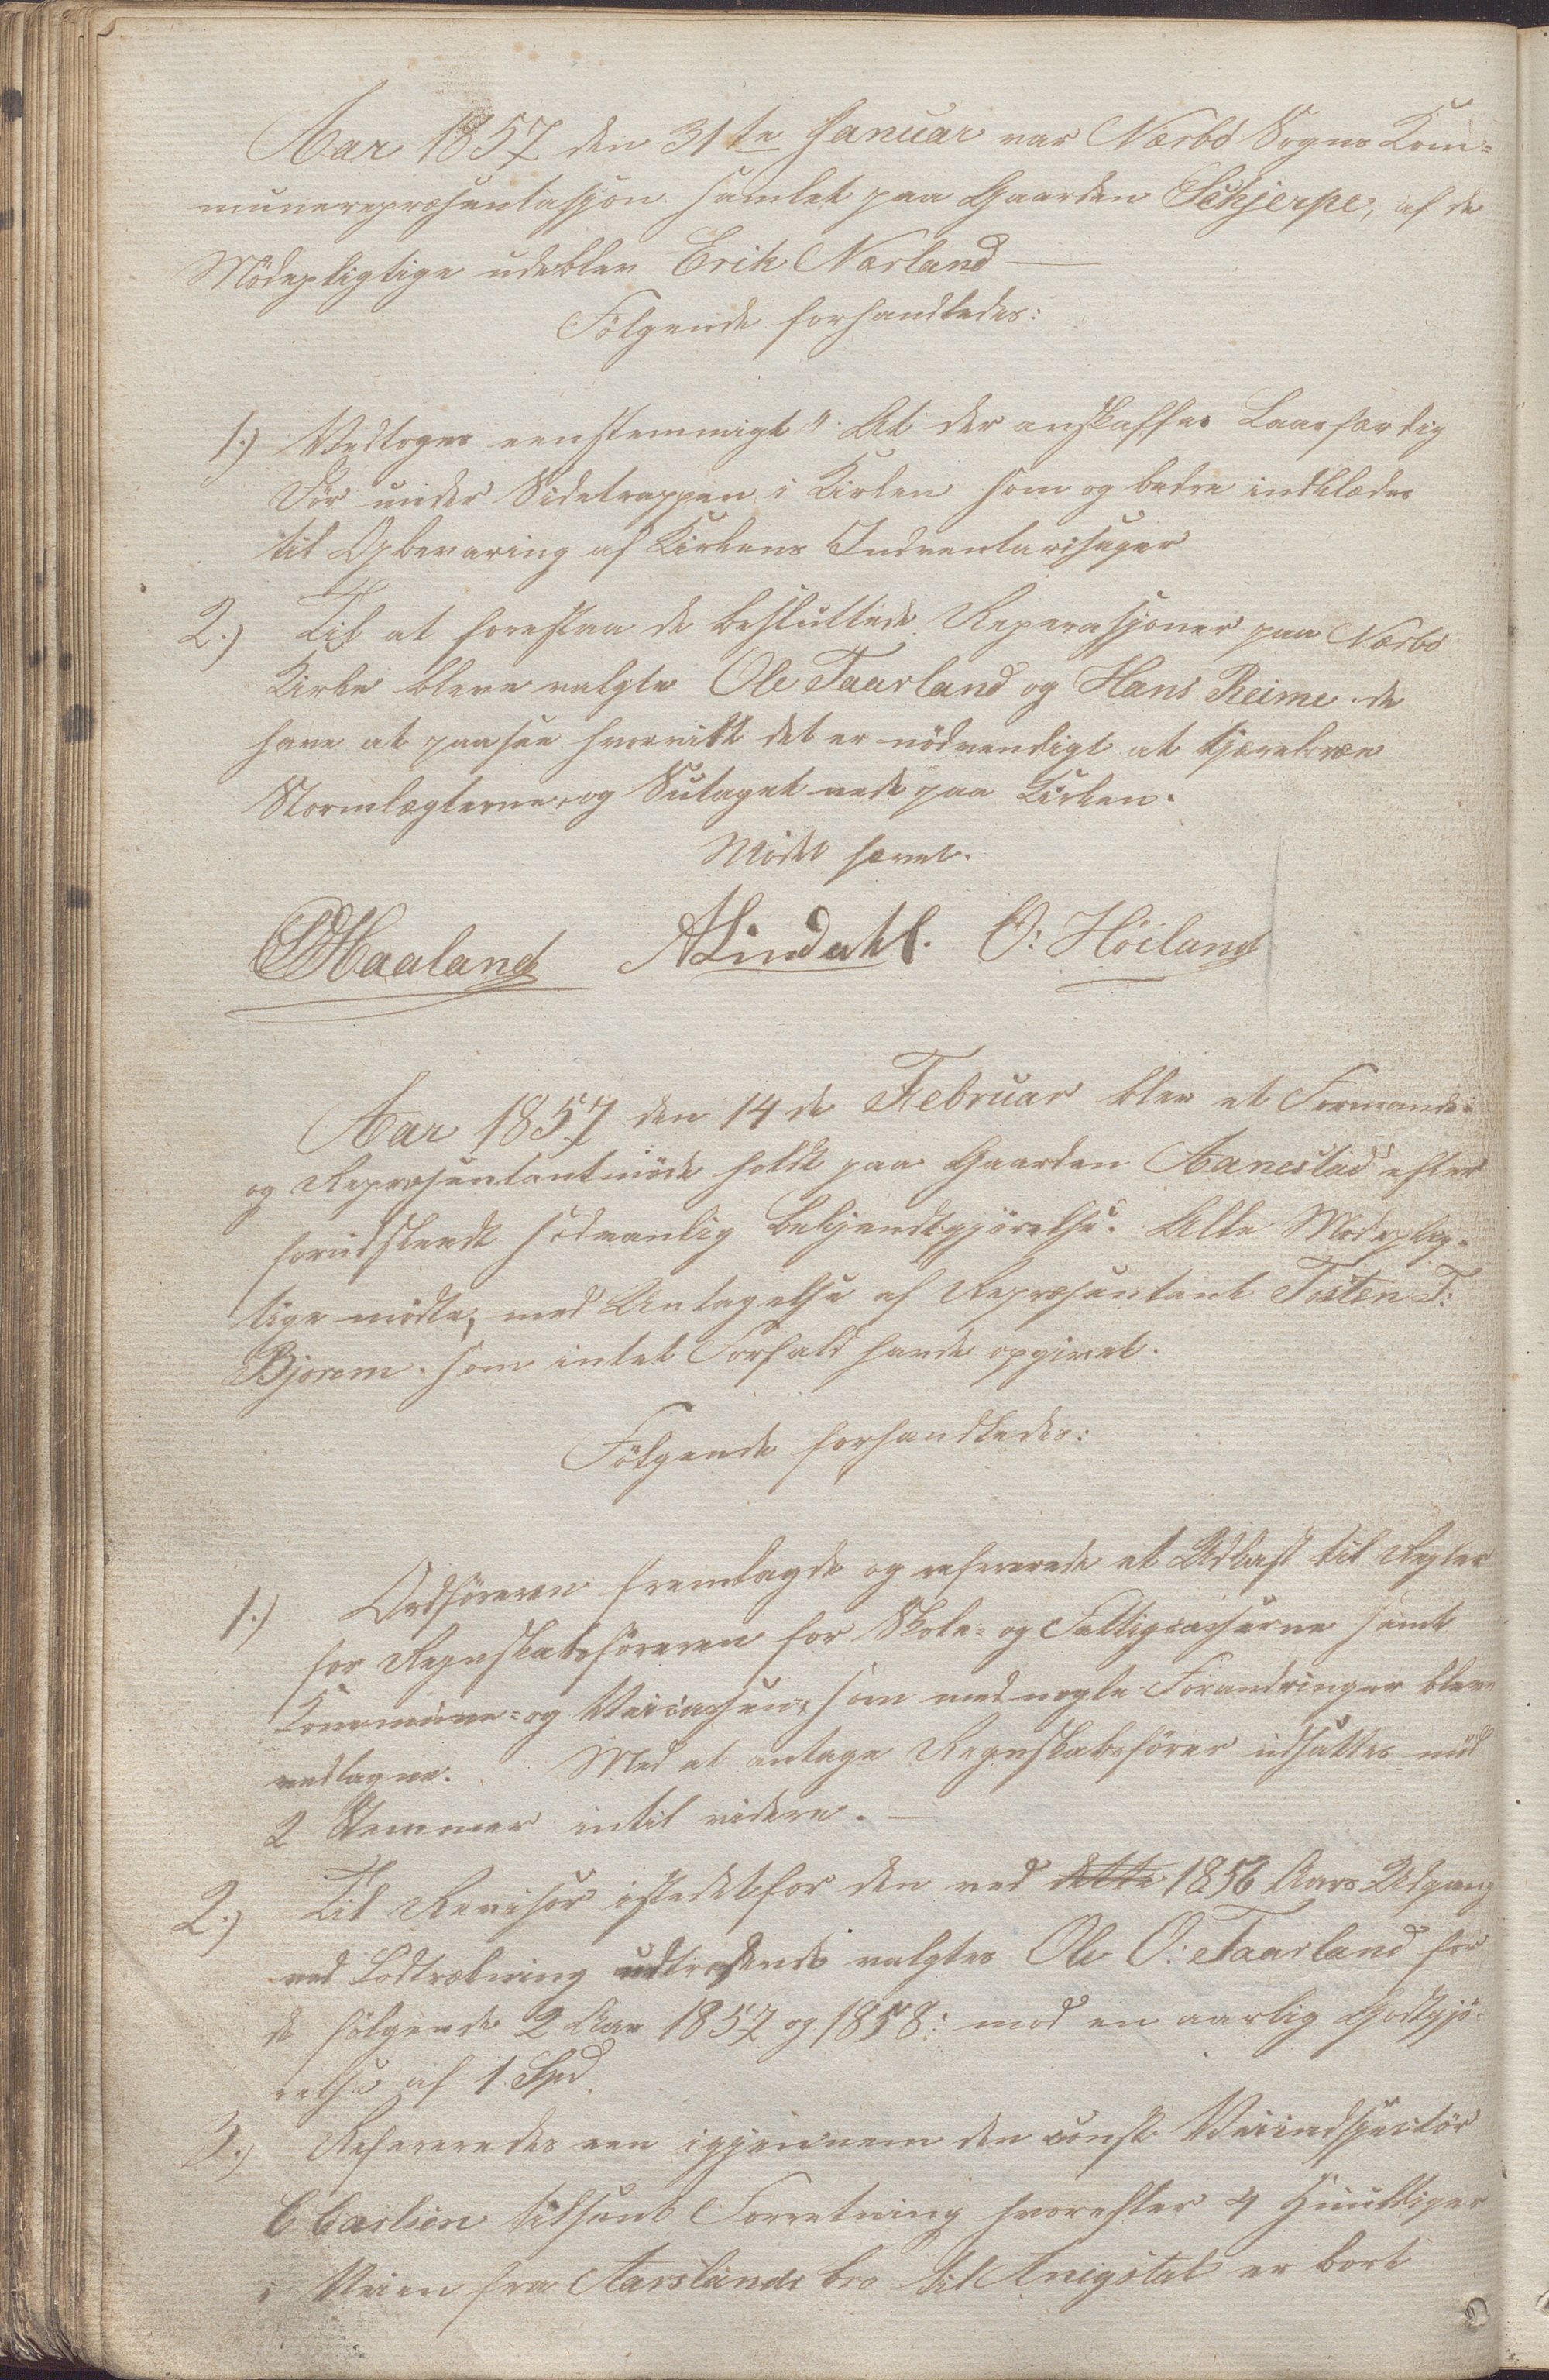 Aar 1857 den 31te Januar var Nærbö Sogns Kom-
munerepræsentasjon samlet paa Gaarden Schjerpe, af de
Mödepligtige udeblev Erik Nærland —
Fölgende forhandledes:
1.) Vedtoges eenstemmigt "At der anskaffes Laasfærdig
Dör under Sidetrappen i Kirken som og bedre indklædes
til Opbevaring af Kirkens Indventariesager
2.) Til at forestaa de besluttede Reperasjoner paa Nærbö
Kirke bleve valgte Ole Taarland og Hans Reime. de
have at paasee hvorvidt det er nödvendigt at tjærebræe
Stormlægterne og Sutaget nede paa Kirken.
Mödet hævet.
Haaland ALindahl. O: Höiland
Aar 1857 den 14de Februar blev et Formands-
og Repræsentantmöde holdt paa Gaarden Aanestad efter
forudskeedt sædvanlig bekjendtgjörelse. Alle Mödeplig-
tige mödte, med Untagelse af Repræsentant Tosten T:
Bjorem. som intet Forfald havde opgivet.
Fölgende forhandledes:
1.) Ordföreren fremlagde og refererede et Udkast til Regler
for Regnskabsföreren for Skole- og Fattigcasserne samt
Kommune- og Veicassen, som med nogle Forandringer bleve
vedtagne. Med at antage Regnskabsförer udsattes mod
2 Stemmer intil videre. —
2.) Til Revisor istedetfor den ved dette 1856 Aars Udgang
ved Lodtrækning udtrædende valgtes Ole O: Taarland for
de fölgende 2 Aar 1857 og 1858: mod en aarlig Godtgjö-
relse af 1 Spd.
3.) Refereredes een igjennem den const. Veiindspectör
C Carlsen tilsent Forretning hvorefter 4 
i Veien fra Aarslands bro til Anigstal er bort